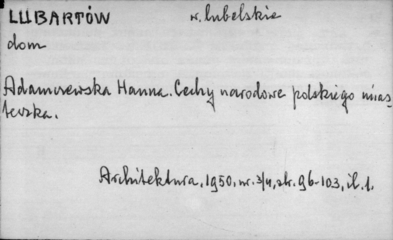 LUBARTÓW w. lubelskie
dom
Adamczewska Hanna. Cechy narodowe polskiego mias-
teczka.
Architektura, 1950, nr. 3/4, str. 96-103, il. 1.